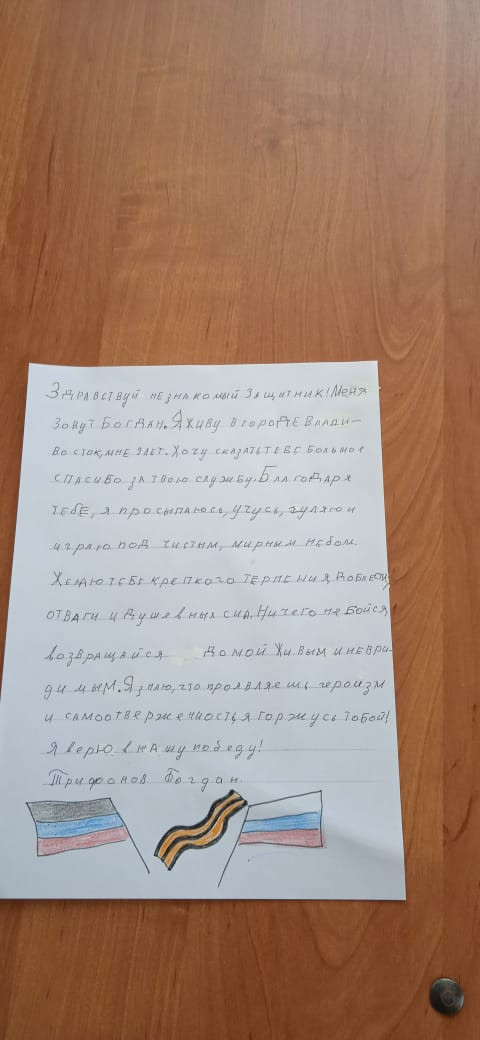 Здравствуй незнакомый защитник! Меня
зовут Богдан. Я живу в городе Влади-
восток, мне 9 лет. Хочу сказать тебе большое
спасибо за твою службу. Благодаря
тебе, я просыпаюсь, учусь, гуляю и
играю под чистым, мирным небом.
Желаю тебе крепкого терпения, доблести,
отваги и душевных сил. Ничего не бойся,
возвращайся домой живым и неври-
димым. Я знаю, что проявляешь героизм
и самоотверженность, я горжусь тобой!
Я верю в нашу победу!
Трифонов Богдан.